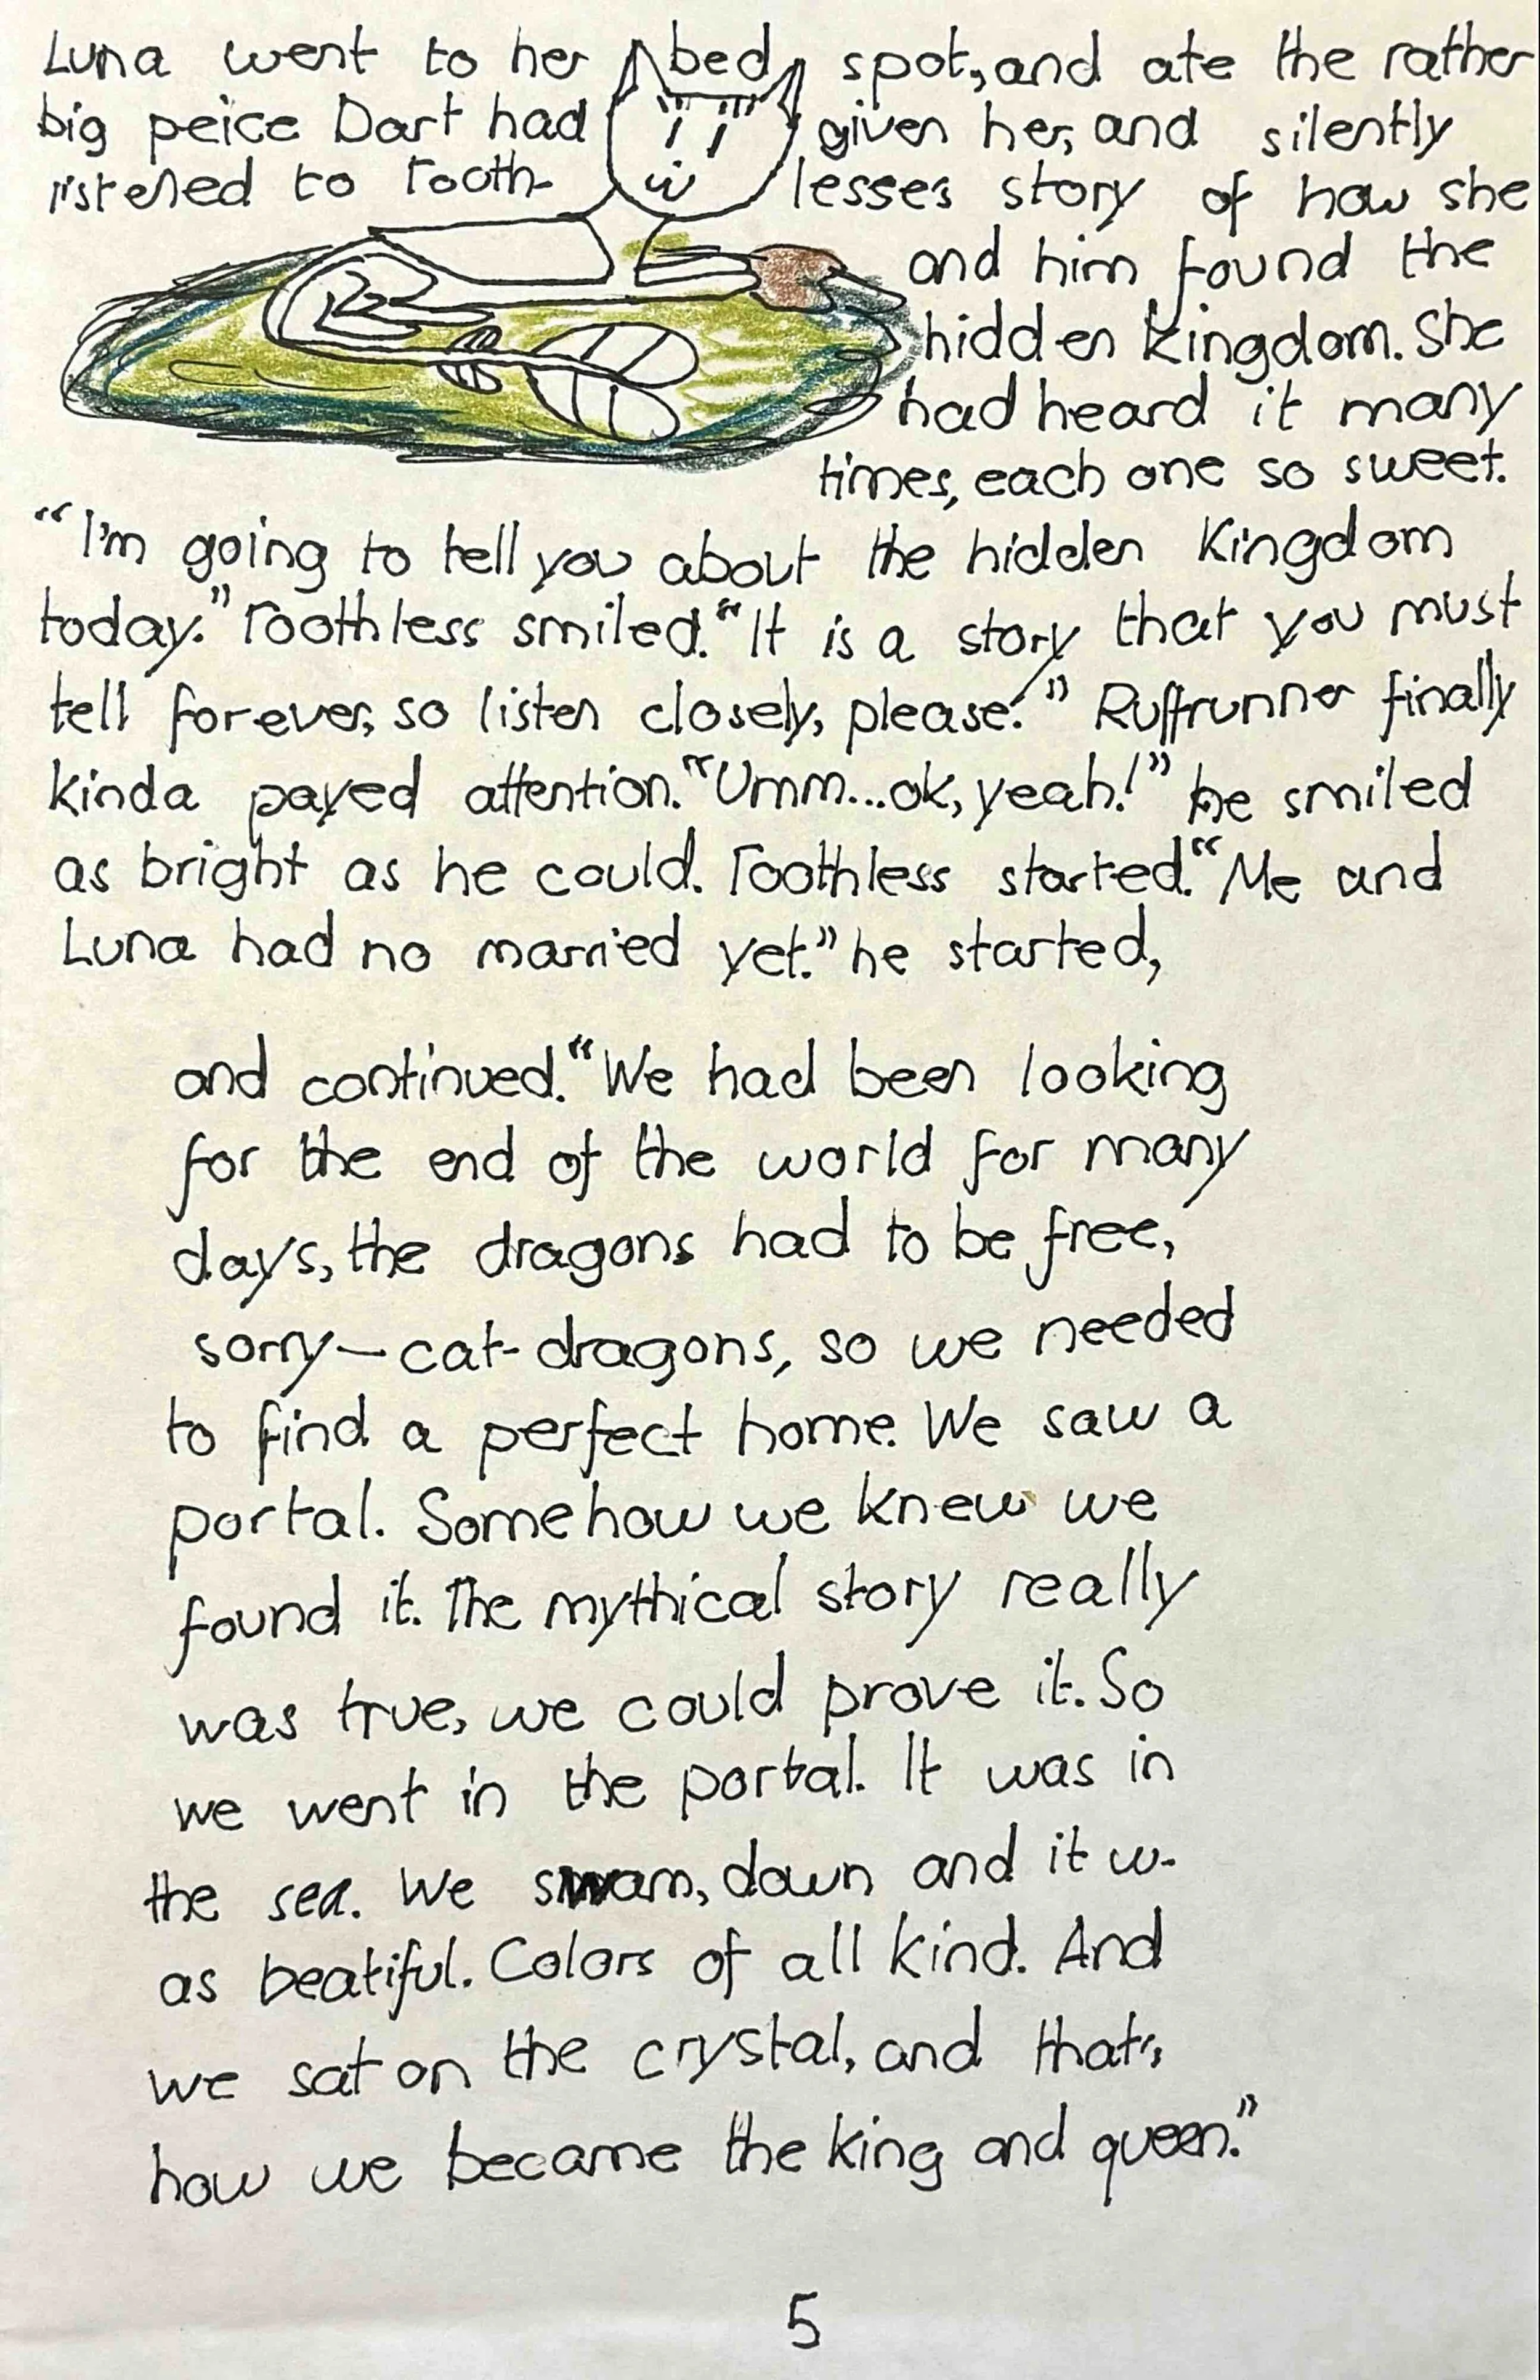 Luna went to her bed spot, and ate the rather
big peice Dart had given her, and silently
listened to Tooth- lesses story of how she
and him found the
hidden kingdom. She
had heard it many
times, each one so sweet.
“I'm going to tell you about the hidden Kingdom
today.” Toothless smiled. “It is a story that you must
tell forever, so listen closely, please.” Ruffrunner finally
kinda payed attention. “Umm...ok, yeah!” he smiled
as bright as he could. Toothless started. “Me and
Luna had no married yet.” he started,
and continued. “We had been looking
for the end of the world for many
days, the dragons had to be free,
sorry—cat-dragons, so we needed
to find a perfect home. We saw a
portal. Somehow we knew we
found it. The mythical story really
was true, we could prove it. So
we went in the portal. It was in
the sea. We swam, down and it w-
as beatiful. Colors of all kind. And
we sat on the crystal, and that's
how we became the king and queen.”
5